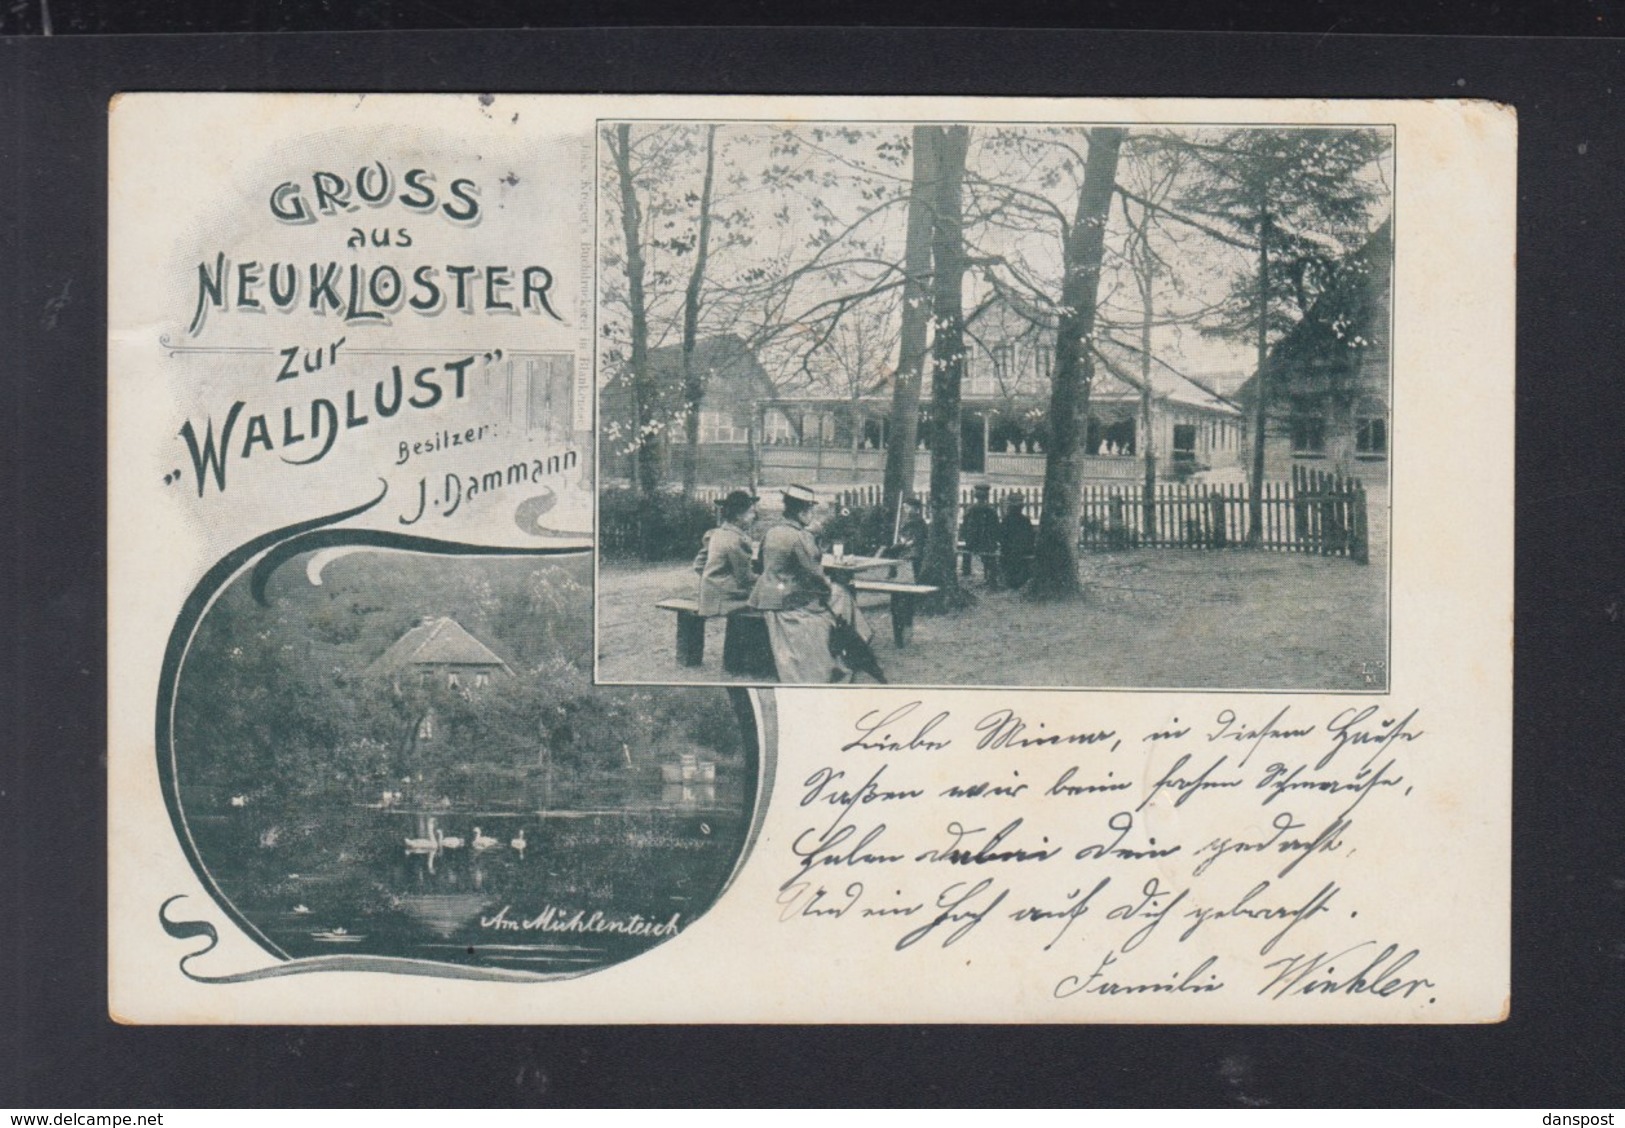 GRUSS
aus
NEUKLOSTER
zur
„WALDLUST"
Besitzer:
J. Dammann
Am Mühlenteich
Liebe Minna, in diesem Hause
Saßen wir beim frohen Schmause,
Haben dabei Dein gedacht,
Und ein Hoch auf Dich gebracht.
Familie Winkler.
www.delcampe.net
danspost